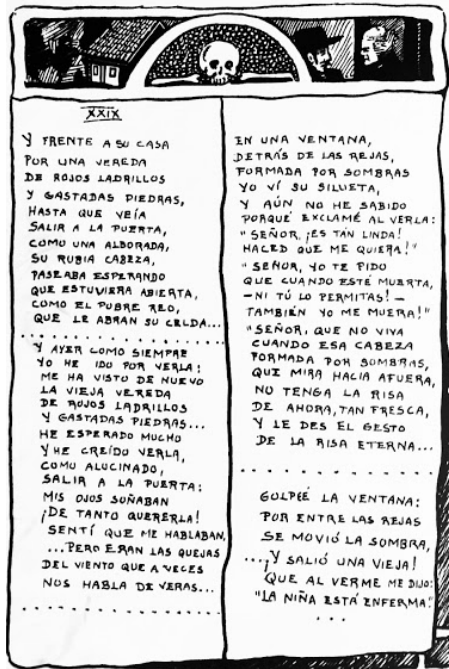 XXIX
Y FRENTE A SU CASA
POR UNA VEREDA
DE ROJOS LADRILLOS
Y GASTADAS PIEDRAS,
HASTA QUE VEÍA
SALIR A LA PUERTA,
COMO UNA ALBORADA,
SU RUBIA CABEZA,
PASEABA ESPERANDO
QUE ESTUVIERA ABIERTA,
COMO EL POBRE REO,
QUE LE ABRAN SU CELDA...
..................
Y AYER COMO SIEMPRE
YO HE IDO POR VERLA;
ME HA VISTO DE NUEVO
LA VIEJA VEREDA
DE ROJOS LADRILLOS
Y GASTADAS PIEDRAS...
HE ESPERADO MUCHO
Y HE CREÍDO VERLA,
COMO ALUCINADO,
SALIR A LA PUERTA:
MIS OJOS SOÑABAN
¡DE TANTO QUERERLA!
SENTÍ QUE ME HABLABAN,
...PERO ERAN LAS QUEJAS
DEL VIENTO QUE A VECES
NOS HABLA DE VERAS...
..................
EN UNA VENTANA,
DETRÁS DE LAS REJAS,
FORMADA POR SOMBRAS
YO VÍ SU SILUETA,
Y AÚN NO HE SABIDO
PORQUÉ EXCLAMÉ AL VERLA:
"SEÑOR, ¡ES TAN LINDA!
HACED QUE ME QUIERA!"
"SEÑOR, YO TE PIDO
QUE CUANDO ESTÉ MUERTA,
-NI TÚ LO PERMITAS!-
TAMBIÉN YO ME MUERA!"
"SEÑOR, QUE NO VIVA
CUANDO ESA CABEZA
FORMADA POR SOMBRAS,
QUE MIRA HACIA AFUERA,
NO TENGA LA RISA
DE AHORA, TAN FRESCA,
Y LE DES EL GESTO
DE LA RISA ETERNA...
..................
GOLPEÉ LA VENTANA:
POR ENTRE LAS REJAS
SE MOVIÓ LA SOMBRA,
...¡Y SALIÓ UNA VIEJA!
QUE AL VERME ME DIJO:
"LA NIÑA ESTÁ ENFERMA."
...